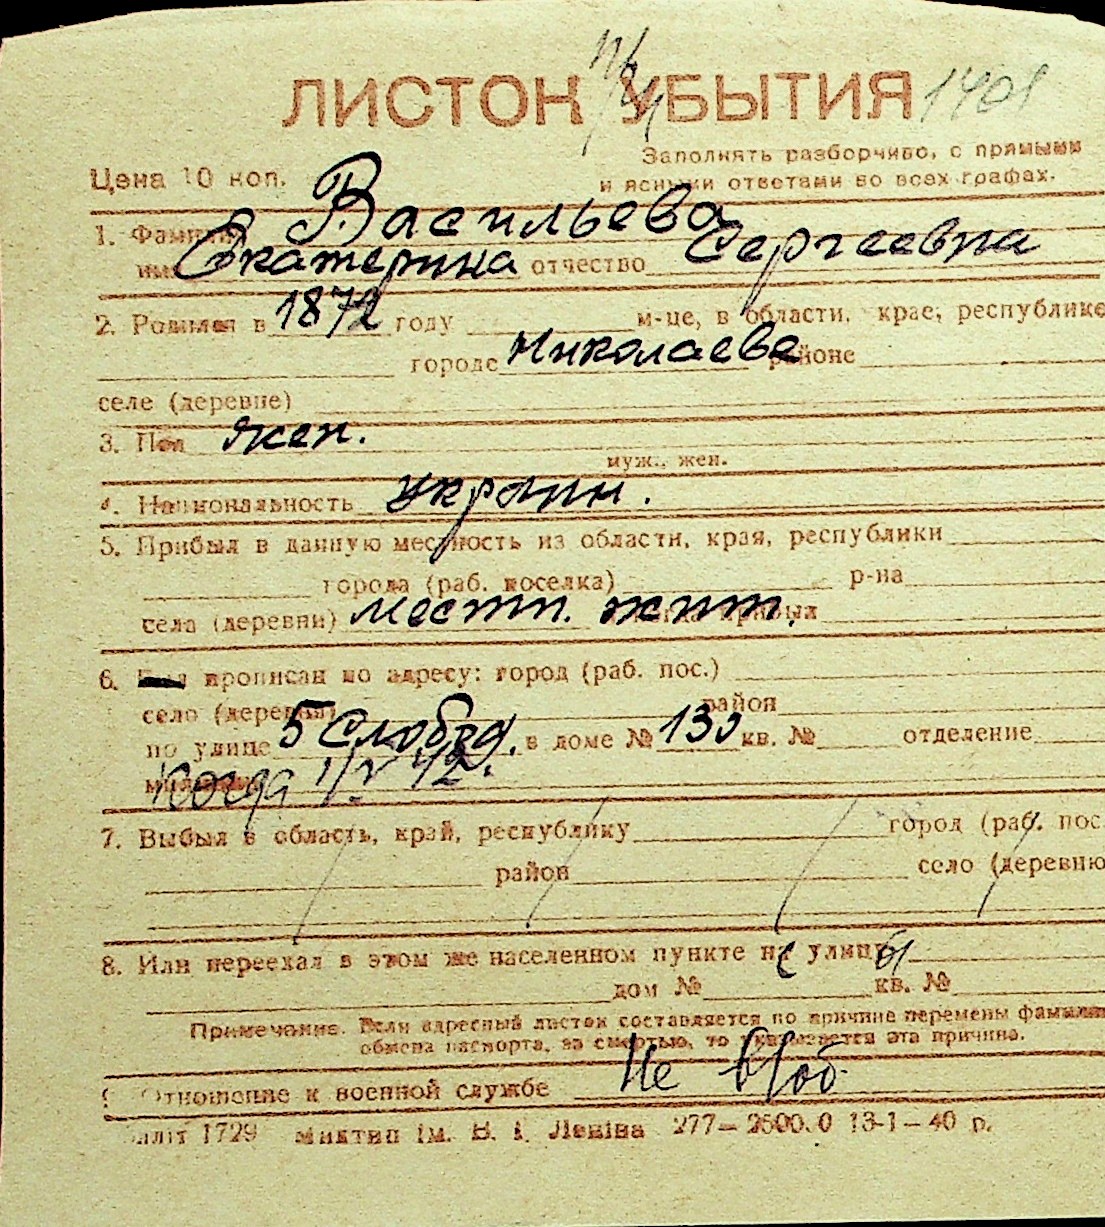 ЛИСТОК УБЫТИЯ 1401
Заполнять разборчиво, с прямыми
Цена 10 коп. и ясными ответами во всех графах.
1. Фамилия Васильева
имя Екатерина отчество Сергеевна
2. Родился в 1872 году м-це, в области, крае, республике
городе Николаеве районе
селе (деревне)
3. Пол жен.
муж., жен.
4. Национальность украин.
5. Прибыл в данную местность из области, края, республики
города (раб. поселка) р-на
села (деревни) местн. жит. прибыл
6. прописан по адресу: город (раб. пос.)
село (деревня) район
по улице 5 Слобод. в доме № 130 кв. № отделение
милиции когда 1/V 42.
7. Выбыл в область, край, республику город (раб. пос.
район село (деревню
8. Или переехал в этом же населенном пункте на улицу
дом № кв. №
Примечание. Если адресный листок составляется по причине перемены фамилии
обмена паспорта, за смертью, то указывается эта причина.
Отношение к военной службе Не в/об
1729 миктип ім. В. І. Леніна 277—2500.0 13-1—40 р.